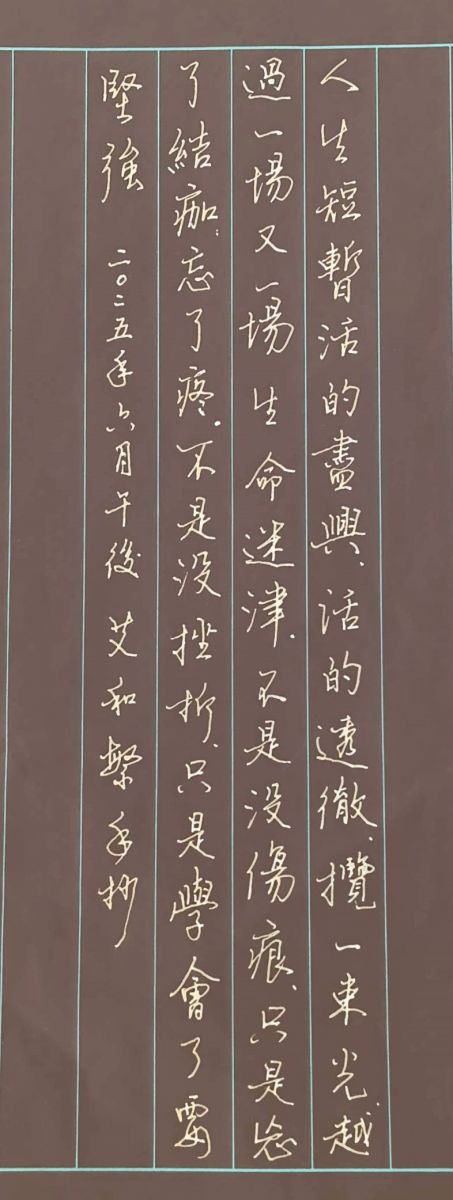 人生短暫活的盡興、活的透徹、攬一束光越
過一場又一場生命迷津、不是没傷痕、只是
了結痂、忘了疼。不是没挫折、只是學會了要
堅強 二〇二五年六月午後 艾和手抄